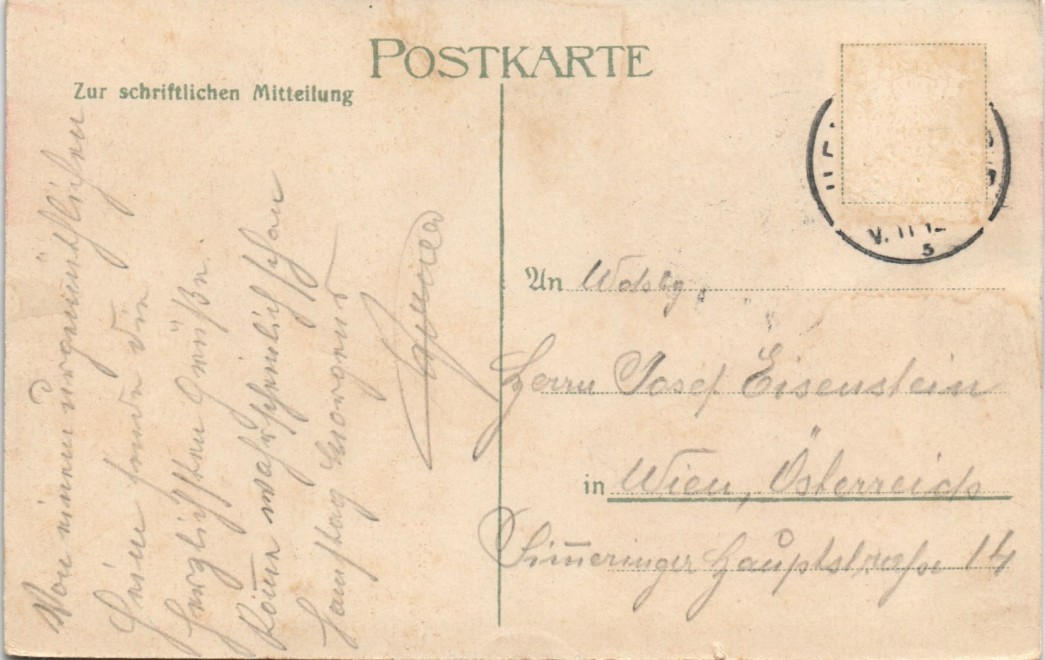 POSTKARTE
Zur schriftlichen Mitteilung
Von einem urgemüthlichen
Heim sende die
herzlichsten Grüße.
Komme wahrscheinlich schon
Samstag Morgens
V. 11 12
5
An Wohlg.
Herrn Josef Eisenstein
in Wien, Österreich
Sim̅eringer Hauptstraße 14